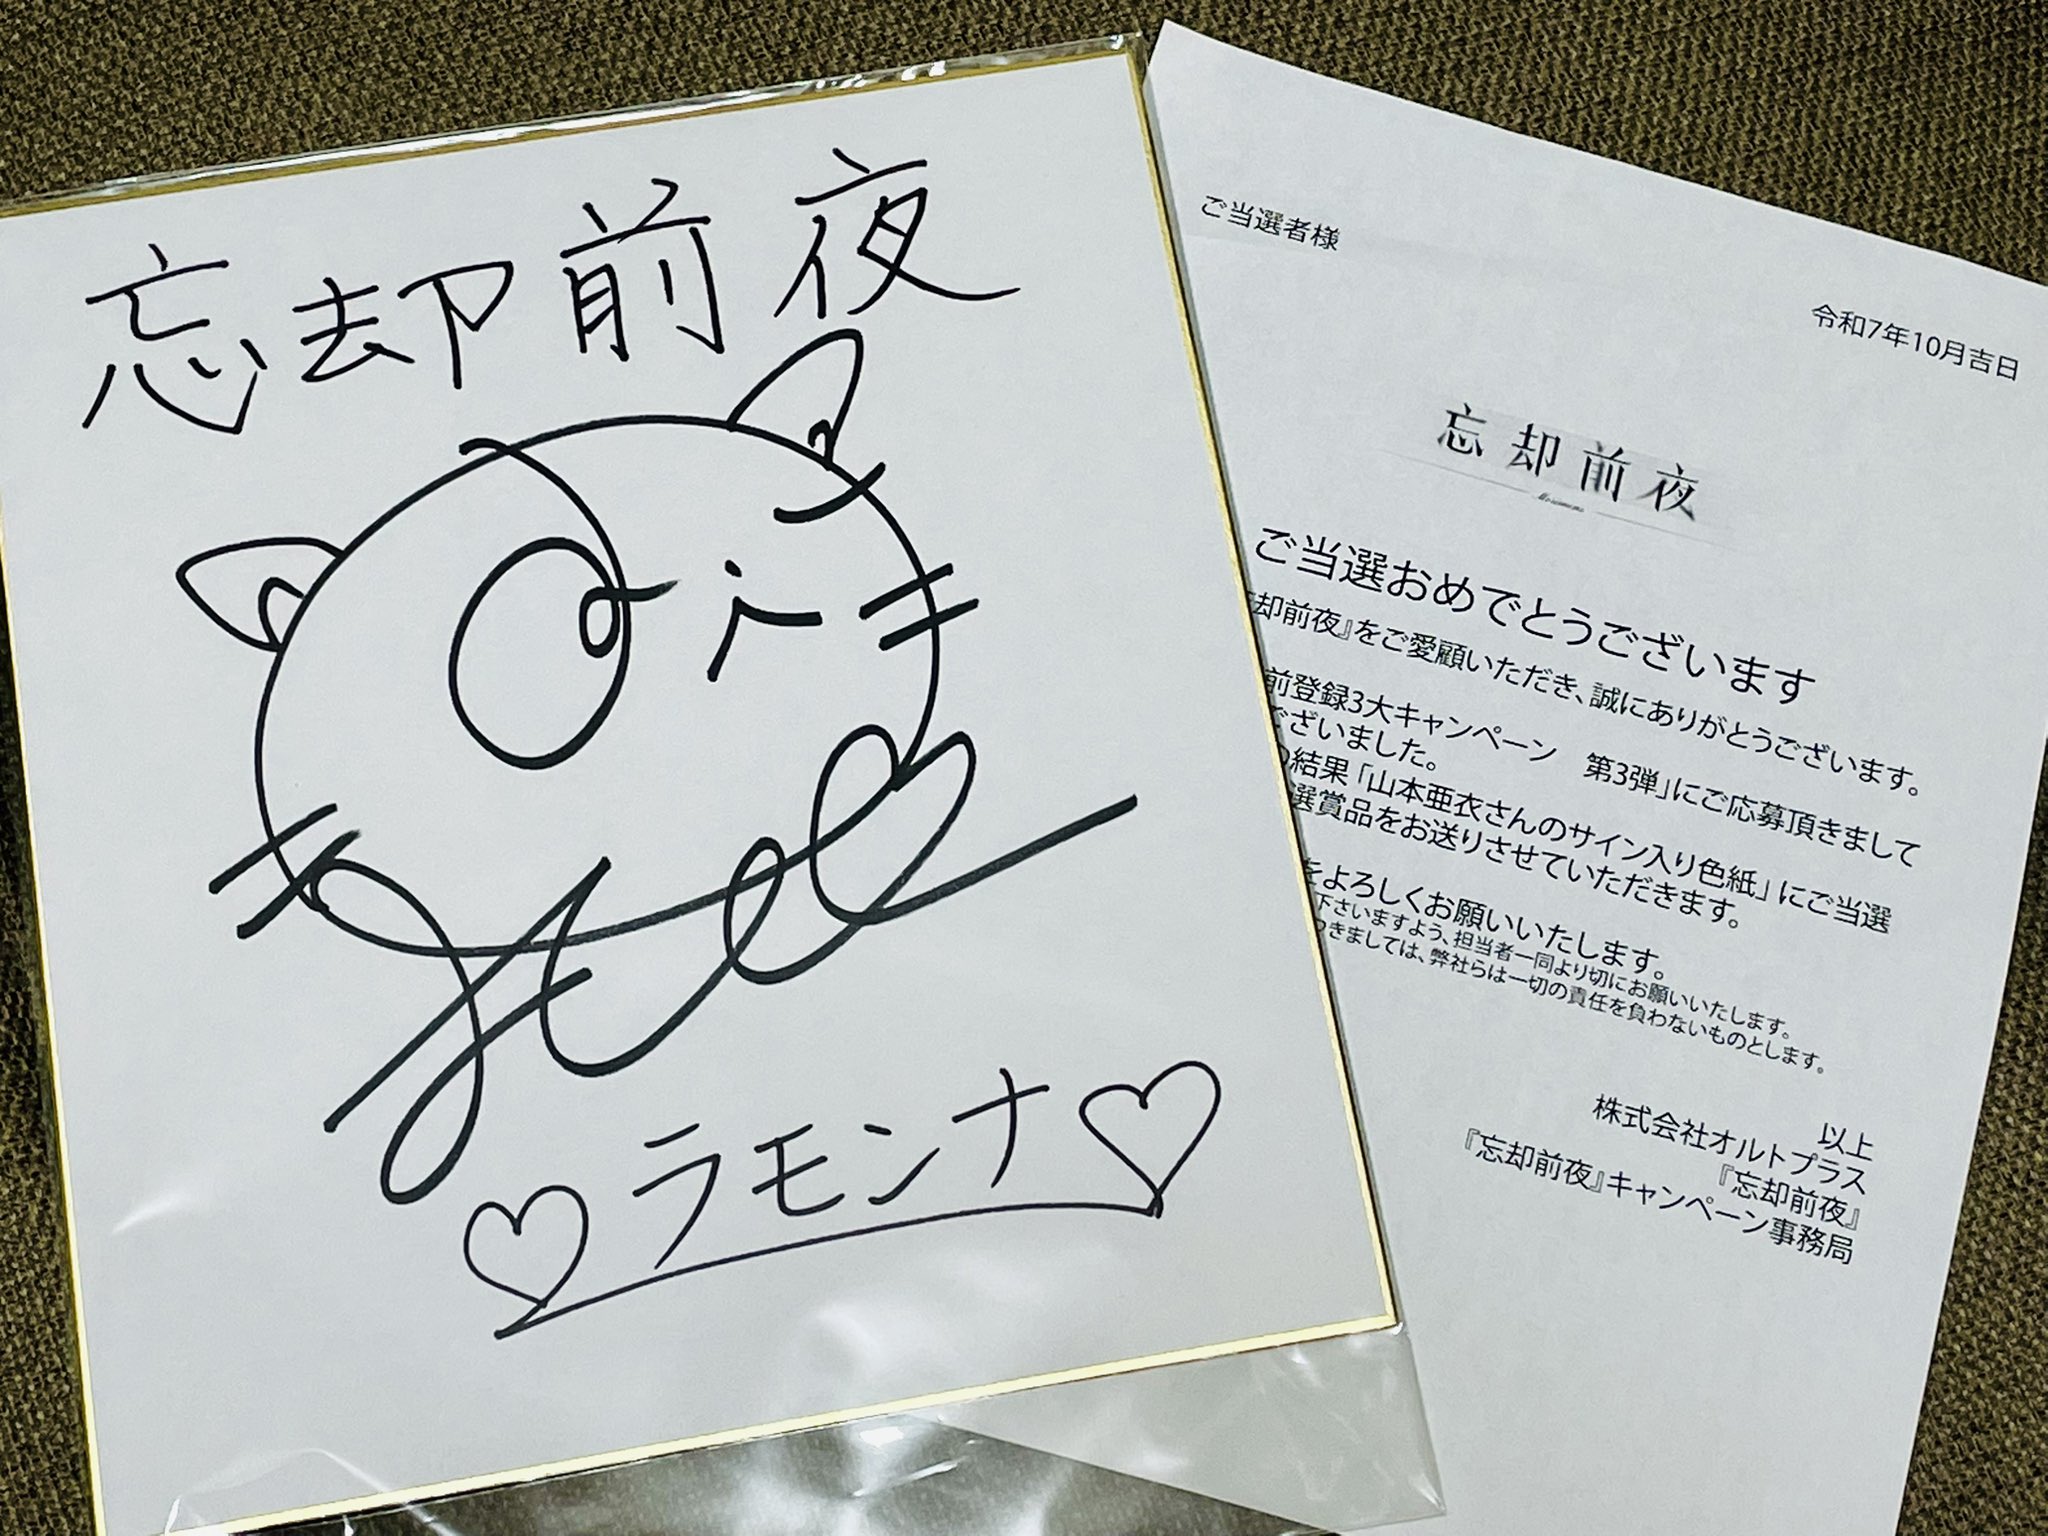 忘却前夜
ラモンナ
ご当選者様
令和7年10月吉日
忘却前夜
ご当選おめでとうございます
却前夜』をご愛顧いただき、誠にありがとうございます。
前登録3大キャンペーン 第3弾」にご応募頂きまして
ございました。
の結果「山本亜衣さんのサイン入り色紙」にご当選
選賞品をお送りさせていただきます。
をよろしくお願いいたします。
下さいますよう、担当者一同より切にお願いいたします。
つきましては、弊社らは一切の責任を負わないものとします。
以上
株式会社オルトプラス
『忘却前夜』
『忘却前夜』キャンペーン事務局